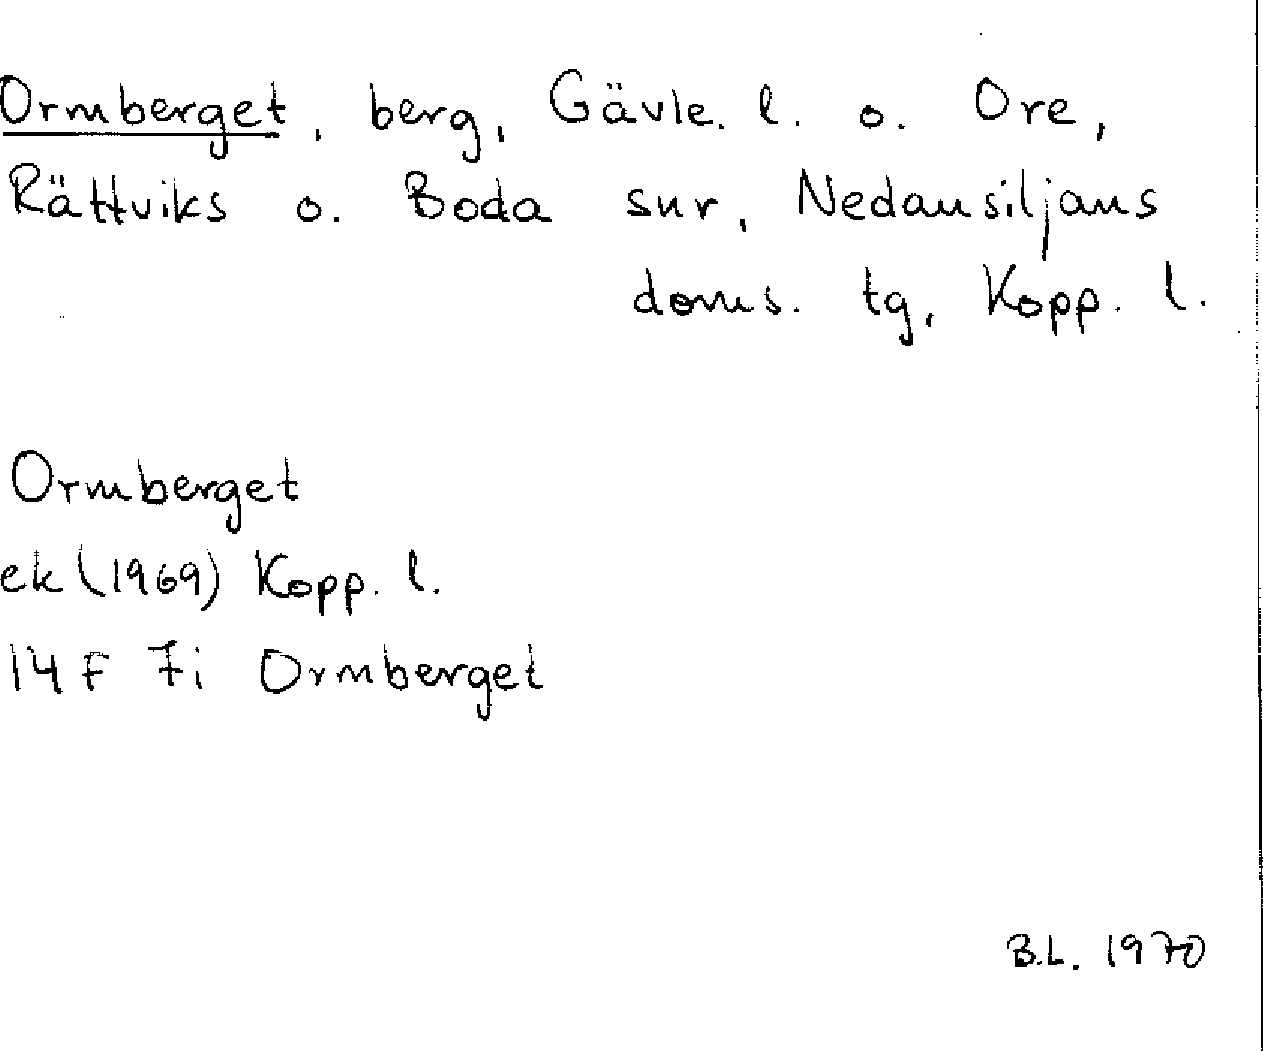 Ormberget, berg, Gävle. l. o. Ore,
Rättviks o. Boda snr, Nedansiljans
doms. tg, Kopp. l.
Ormberget
ek (1969) Kopp. l.
14 F 7i Ormberget
B.L. 1970